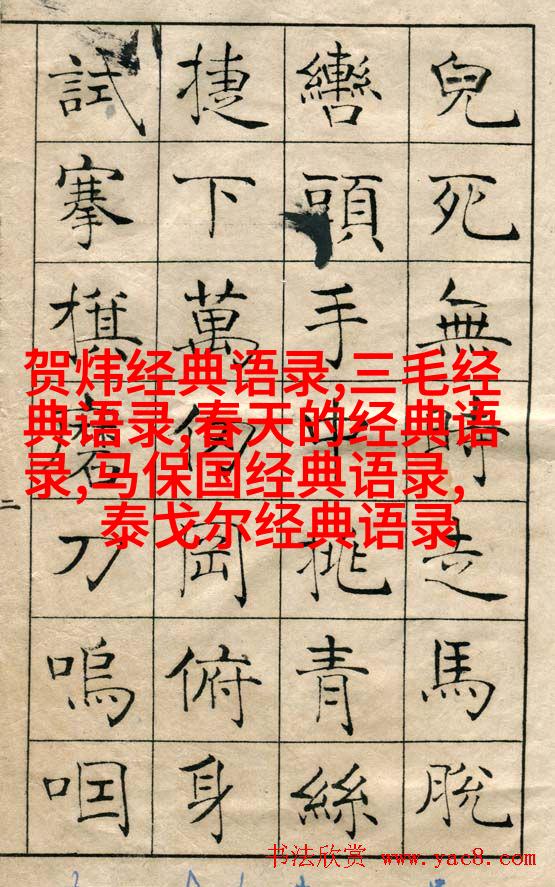 兒死無時走馬脫
轡頭手中挑青絲
捷下萬仞岡俯身
試搴旗磨刀嗚咽
二
贺炜经典语录,三毛经
典语录,春天的经典语
录,马保国经典语录,
泰戈尔经典语录
书法欣赏 www.yac8.com